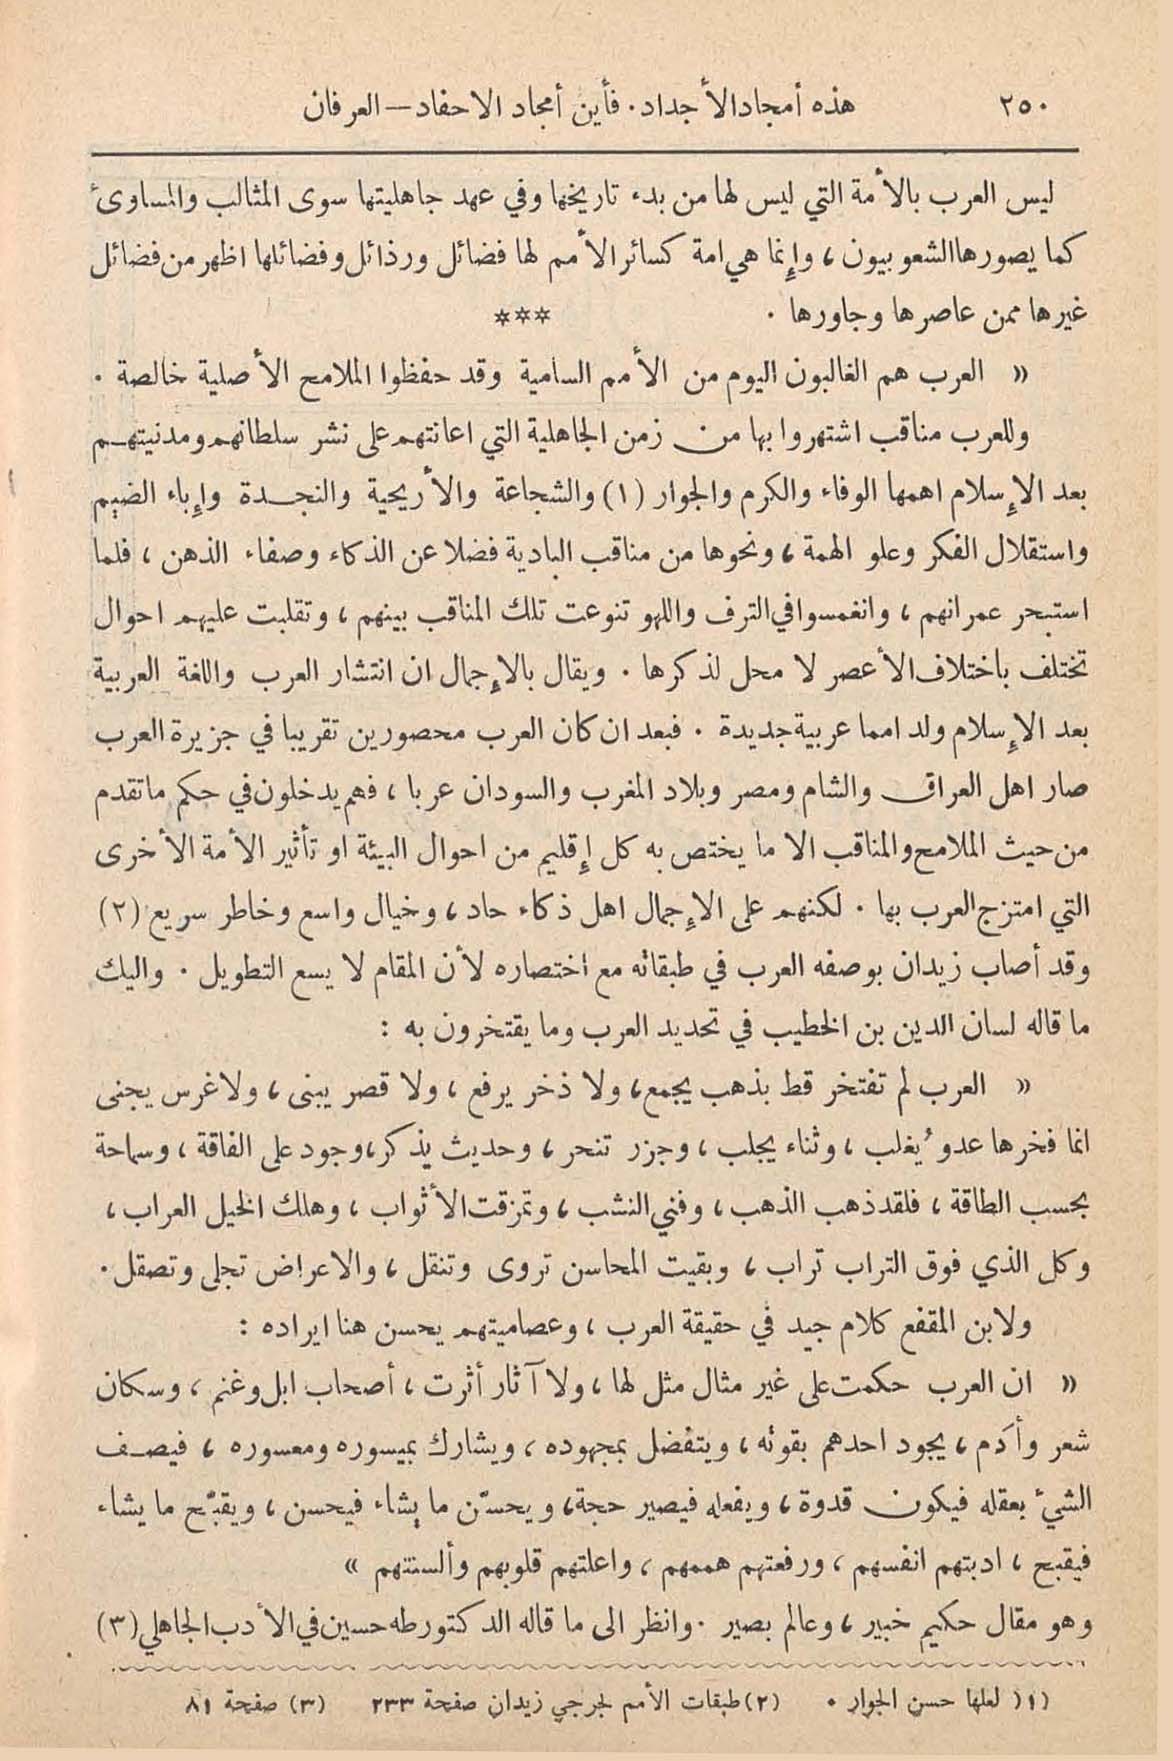 ٢٥٠ هذه أمجاد الأجداد. فأين أمجاد الاحفاد – العرفان
ليس العرب بالأمة التي ليس لها من بدء تاريخها وفي عهد جاهليتها سوى المثالب والمساوئ
كما يصورها الشعوبيون، وإنما هي امة كسائر الأمم لها فضائل ورذائل وفضائلها اظهر من فضائل
غيرها ممن عاصرها وجاورها . ***
« العرب هم الغالبون اليوم من الأمم السامية وقد حفظوا الملامح الأصلية خالصة .
وللعرب مناقب اشتهروا بها من زمن الجاهلية التي اعانتهم على نشر سلطانهم ومدنيتهم
بعد الإسلام اهمها الوفاء والكرم والجوار (١) والشجاعة والأريحية والنجدة وإباء الضيم
واستقلال الفكر وعلو الهمة، ونحوها من مناقب البادية فضلا عن الذكاء وصفاء الذهن، فلما
استبحر عمرانهم، وانغمسوا في الترف واللهو تنوعت تلك المناقب بينهم، وتقلبت عليهم احوال
تختلف باختلاف الأعصر لا محل لذكرها . ويقال بالإجمال ان انتشار العرب واللغة العربية
بعد الإسلام ولد امما عربية جديدة . فبعد ان كان العرب محصورين تقريبا في جزيرة العرب
صار اهل العراق والشام ومصر وبلاد المغرب والسودان عربا، فهم يدخلون في حكم ما تقدم
من حيث الملامح والمناقب الا ما يختص به كل إقليم من احوال البيئة او تأثير الأمة الأخرى
التي امتزج العرب بها . لكنهم على الإجمال اهل ذكاء حاد، وخيال واسع وخاطر سريع (٢)
وقد أصاب زيدان بوصفه العرب في طبقاته مع اختصاره لأن المقام لا يسع التطويل . واليك
ما قاله لسان الدين بن الخطيب في تحديد العرب وما يقتخرون به :
« العرب لم تفتخر قط بذهب يجمع، ولا ذخر يرفع، ولا قصر يبنى، ولا غرس يجنى
انما فخرها عدو ُيغلب، وثناء يجلب، وجزر تنحر، وحديث يذكر، وجود على الفاقة، وسماحة
بحسب الطاقة، فلقد ذهب الذهب، وفني النشب، وتمزقت الأثواب، وهلك الخيل العراب،
وكل الذي فوق التراب تراب، وبقيت المحاسن تروى وتنقل، والاعراض تجلى وتصقل .
ولابن المقفع كلام جيد في حقيقة العرب، وعصاميتهم يحسن هنا ايراده :
« ان العرب حكمت على غير مثال مثل لها، ولا آثار أثرت، أصحاب ابل وغنم، وسكان
شعر وأدَم، يجود احدهم بقوته، ويتفضل بمجهوده، ويشارك بميسوره ومعسوره، فيصف
الشيء بعقله فيكون قدوة، ويفعله فيصير حجة، ويحسّن ما يشاء فيحسن، ويقبّح ما يشاء
فيقبح، ادبتهم انفسهم، ورفعتهم هممهم، واعلتهم قلوبهم وألسنتهم »
وهو مقال حكيم خبير، وعالم بصير . وانظر الى ما قاله الدكتور طه حسين في الأدب الجاهلي (٣)
(١) لعلها حسن الجوار . (٢) طبقات الأمم لجرجي زيدان صفحة ٢٣٣ (٣) صفحة ٨١